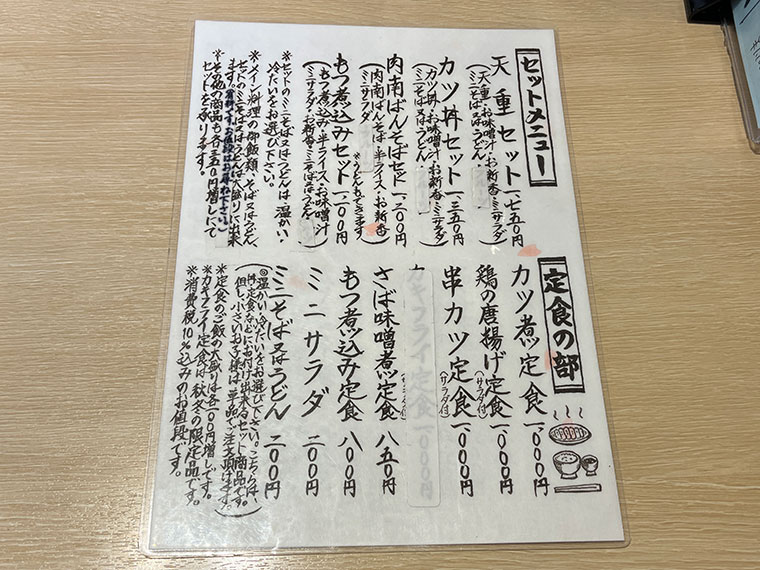 セットメニュー
天重セット 一、七五〇円
(天重・お味噌汁・お新香・ミニサラダ
ミニそば又はうどん)
カツ丼セット 一、三五〇円
(カツ丼・お味噌汁・お新香・ミニサラダ
ミニそば又はうどん)
肉南ばんそばセット 一、二〇〇円
(肉南ばんそば・半ライス・お新香
ミニサラダ) ※うどんもできます
もつ煮込みセット 一、一〇〇円
(もつ煮込み・半ライス・お味噌汁
ミニサラダ・お新香・ミニそば又はうどん)
※セットのミニそば又はうどんは、温かい・
冷たいをお選び下さい。
※メイン料理の御飯類、そば又はうどん、
セットのミニそば又はうどんは大盛りに出来
ます。
※その他の商品も各三五〇円増しにて
セットを承ります。
定食の部
カツ煮定食 一、〇〇〇円
鶏の唐揚げ定食(サラダ付) 一、〇〇〇円
串カツ定食(サラダ付) 一、〇〇〇円
カキフライ定食 一、〇〇〇円
さば味噌煮定食(サラダ付) 八五〇円
もつ煮込み定食 八〇〇円
ミニサラダ 二〇〇円
ミニそば又はうどん 二〇〇円
(◎温かい・冷たいをお選び下さい。こちらは、
丼・定食などにお付け出来るセット商品です。
但し、小さいお子様は単品でご注文頂けます。)
※定食のご飯の大盛りは各一〇〇円増しです。
※カキフライ定食は秋冬の限定品です。
※消費税10%込みのお値段です。